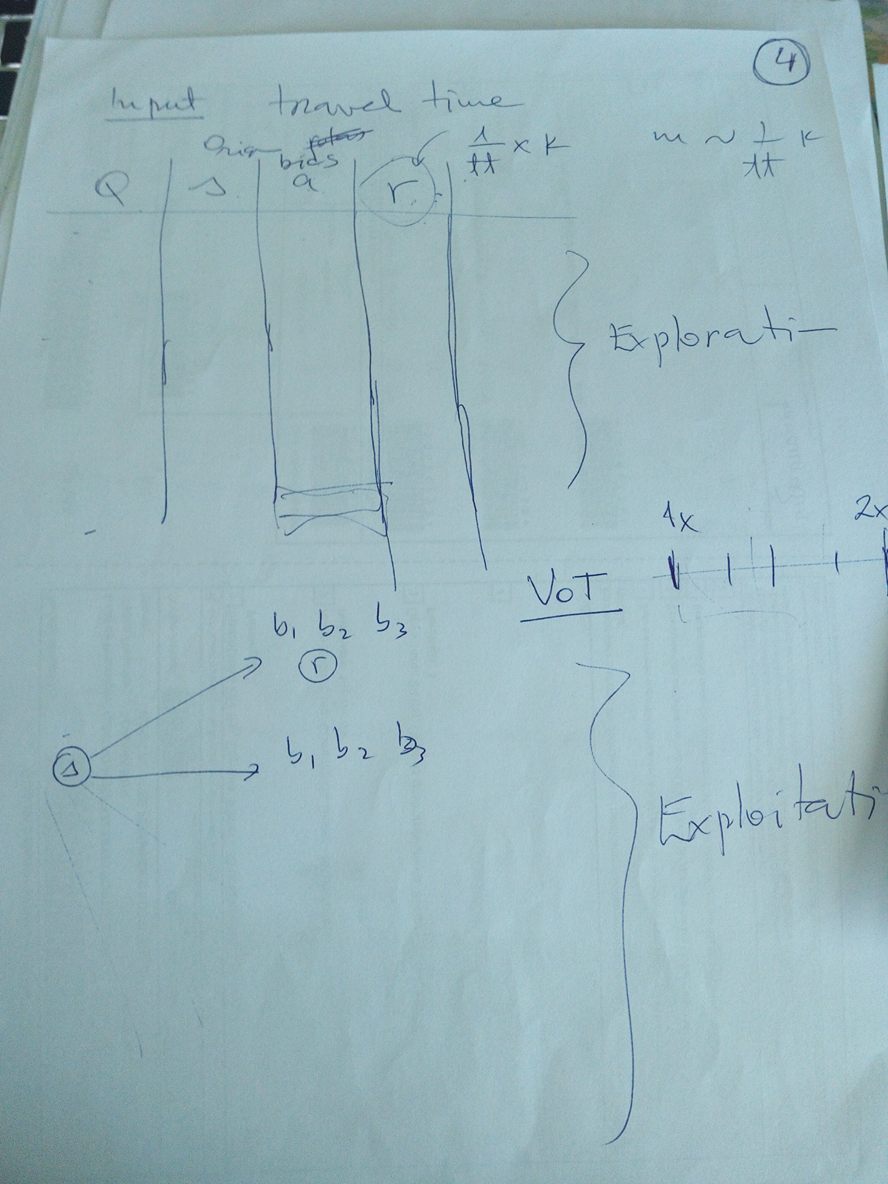 4
Input travel time
bids 1/tt x k m ~ 1/tt k
Q s a r
Explorati
1x 2x
VoT
b1 b2 b3
r
s b1 b2 b3
Exploitati